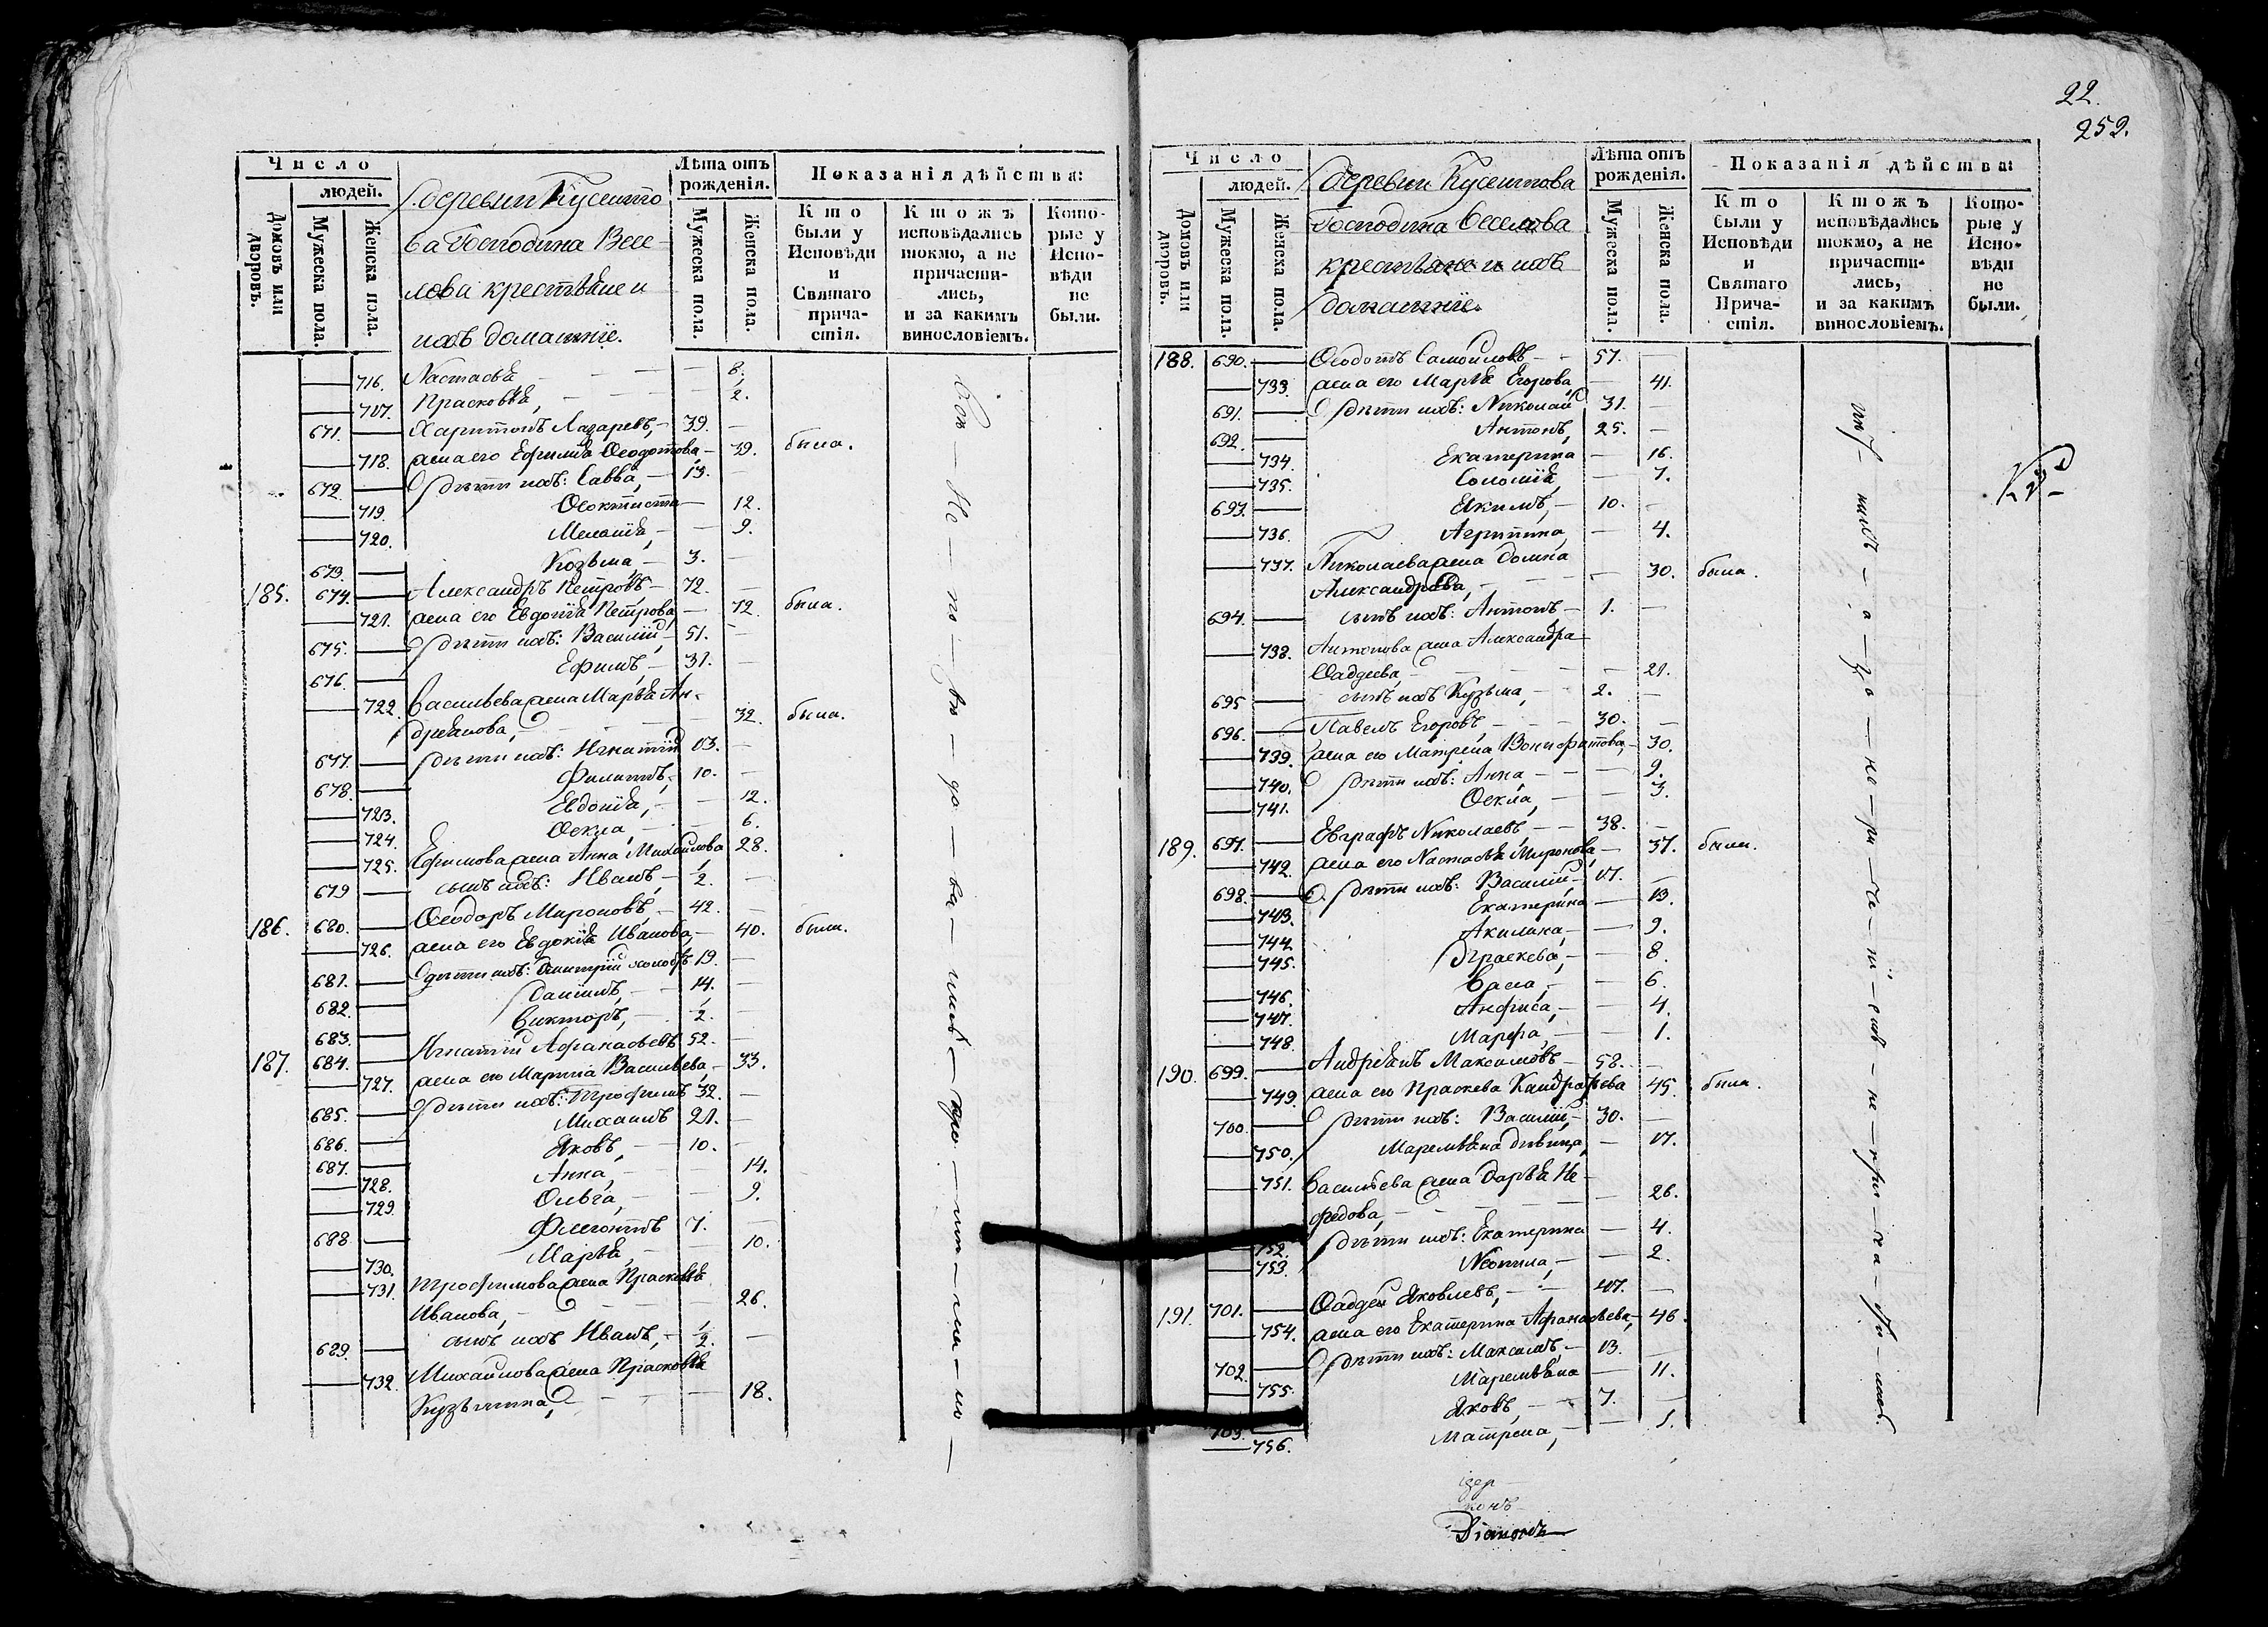 22.
252.
Число
людей.
Домовъ или дворовъ.
Мужеска пола.
Женска пола.
деревни Кусеито
ва Господина Весе-
лова крестьяне и
ихъ домашніе.
Лѣта отъ
рожденія.
Мужеска пола.
Женска пола.
Показанія дѣйства:
Кто
были у
Исповѣди
и
Святаго
прича-
стія.
Ктожъ
исповѣдались
токмо, а не
причасти-
лись,
и за какимъ
винословіемъ.
Кото-
рые у
Испо-
вѣди
не
были.
716. Настасья - 8.
717. Прасковья, - 2.
671. Харитонъ Лазаревъ, - 39.
718. жена его Ефимья Ѳеодотова - 39. была.
672. дѣти ихъ: Савва, - 13.
719. Ѳеоктиста - 12.
720. Меланья, - 9.
673. Козьма, - 3.
185. 674. Александръ Петровъ - 72.
721. жена его Евдокія Петрова, - 72. была.
675. дѣти ихъ: Василій, - 51.
676. Ефимъ, - 31.
722. Васильева жена Марья Ан-
дреянова, - 32. была.
677. дѣти ихъ: Игнатій 13.
678. Филиппъ, - 10.
723. Евдокія, - 12.
724. Ѳекла, - 6.
725. Ефимова жена Анна Михайлова 28.
679 сынъ ихъ: Иванъ, - 2.
186. 680. Ѳеодоръ Мироновъ, - 42.
726. жена его Евдокія Иванова, - 40. были.
681. дѣти ихъ: Дмитрій холостъ 19.
682. Даніилъ, - 14.
683. Викторъ, - 2.
187. 684. Игнатій Афанасьевъ 52.
727. жена его Марина Васильева, - 33.
685. дѣти ихъ: Трофимъ 32.
686. Михаилъ 21.
687. Яковъ, - 10.
728. Анна, - 14.
729. Ольга, - 9.
688 Флегонтъ 7.
730. Марья, - 10.
731. Трофимова жена Прасковья
Иванова, - 26.
689. сынъ ихъ Иванъ, - 2.
732. Михайлова жена Прасковья
Кузьмина, - 18.
Число
людей.
Домовъ или дворовъ.
Мужеска пола.
Женска пола.
деревни Кусеитова
Господина Веселова
крестьяне и ихъ
домашніе.
Лѣта отъ
рожденія.
Мужеска пола.
Женска пола.
Показанія дѣйства:
Кто
были у
Исповѣди
и
Святаго
Прича-
стія.
Ктожъ
исповѣдались
токмо, а не
причасти-
лись,
и за какимъ
винословіемъ.
Кото-
рые у
Испо-
вѣди
не
были.
188. 690. Ѳеодотъ Самойловъ - 57.
733. жена его Марья Егорова, - 41.
691. дѣти ихъ: Николай 31.
692. Антонъ, 25.
734. Екатерина - 16.
735. Соломія, - 7.
693. Екимъ, - 10.
736. Агрипина, - 4.
737. Николаева жена Домна
Александрова, - 30. была.
694. сынъ ихъ: Антонъ, - 1.
738. Антонова жена Александра
Ѳаддеева, - 21.
695 сынъ ихъ Кузьма, - 2.
696. Павелъ Егоровъ, - 30.
739. жена его Матрена Вонифатова, - 30.
740. дѣти ихъ: Анна, - 9.
741. Ѳекла, - 3.
189. 697. Евграфъ Николаевъ, - 38.
742. жена его Настасья Миронова, - 37. были.
698. дѣти ихъ: Василій, - 17.
743. Екатерина - 13.
744. Акилина, - 9.
745. Праскева, - 8.
746. Васса, - 6.
747. Анфиса, - 4.
748. Марфа, - 1.
190. 699. Андреянъ Максимовъ - 58.
749. жена его Праскева Кандратьева 45. была.
700. дѣти ихъ: Василій, - 30.
750. Маремьяна дѣвица, - 17.
751. Васильева жена Дарья Не-
федова, - 26.
752. дѣти ихъ: Екатерина - 4.
753. Неонила, - 2.
191. 701. Ѳаддей Яковлевъ, - 47.
754. жена его Екатерина Афанасьева, - 46.
702. дѣти ихъ: Максимъ, - 13.
755. Маремьяна - 11.
703. Яковъ, - 7.
756. Матрена, - 1.